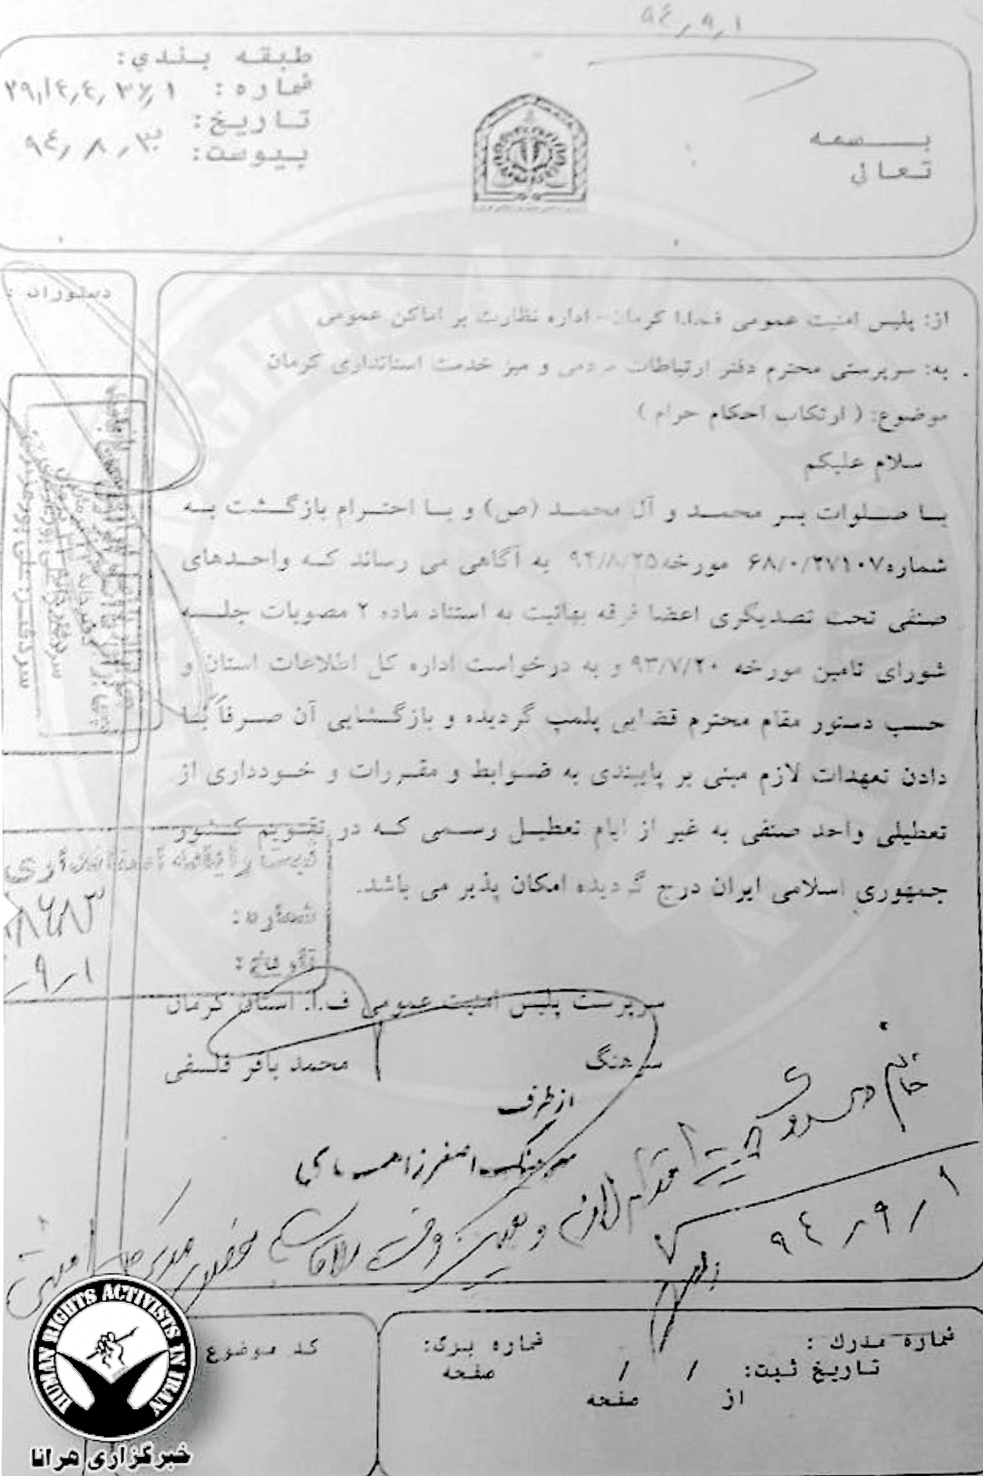 ۹۴٫۹٫۱
طبقه بندي:
شماره :
تاریخ: ۹۴٫۸٫۳۰
پیوست:
بسمه
تعالی
دستورات :
از: پلیس امنیت عمومی ف.ا.ا کرمان - اداره نظارت بر اماکن عمومی
به: سرپرستی محترم دفتر ارتباطات مردمی و میز خدمت استانداری کرمان
موضوع: ( ارتکاب احکام حرام )
سلام علیکم
با صلوات بر محمد و آل محمد (ص) و با احترام بازگشت به
شماره ۶۸/۰/۲۷۱۰۷ مورخه ۹۴/۸/۲۵ به آگاهی می رساند که واحدهای
صنفی تحت تصدیگری اعضا فرقه بهائیت به استناد ماده ۲ مصوبات جلسه
شورای تامین مورخه ۹۳/۷/۲۰ و به درخواست اداره کل اطلاعات استان و
حسب دستور مقام محترم قضایی پلمپ گردیده و بازگشایی آن صرفاً با
دادن تعهدات لازم مبنی بر پایبندی به ضوابط و مقررات و خودداری از
تعطیلی واحد صنفی به غیر از ایام تعطیل رسمی که در تقویم کشور
جمهوری اسلامی ایران درج گردیده امکان پذیر می باشد.
شماره :
تاریخ :
۹٫۱
سرپرست پلیس امنیت عمومی ف.ا. استان کرمان
سرهنگ محمد باقر فلسفی
از طرف
سرهنگ
خانم
جهت اقدام لازم و
۹۴٫۹٫۱
شماره مدرك :
تاریخ ثبت: / /
از صفحه
شماره برگ:
صفحه
کد موضوع
HUMAN RIGHTS ACTIVISTS IN IRAN
خبرگزاری هرانا